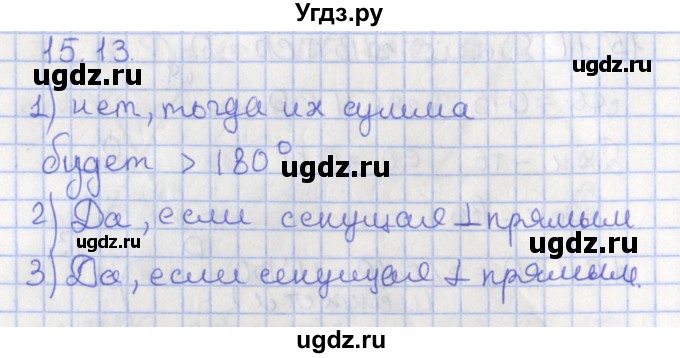 Угдз.ру
15.13.
ugdz.ru ugdz.ru
1) нет, тогда их сумма
будет > 180°
ugdz.ru ugdz.ru
2) Да, если секущая ⊥ прямым
ugdz.ru ugdz.ru
3) Да, если секущая ⊥ прямым.
ugdz.ru ugdz.ru